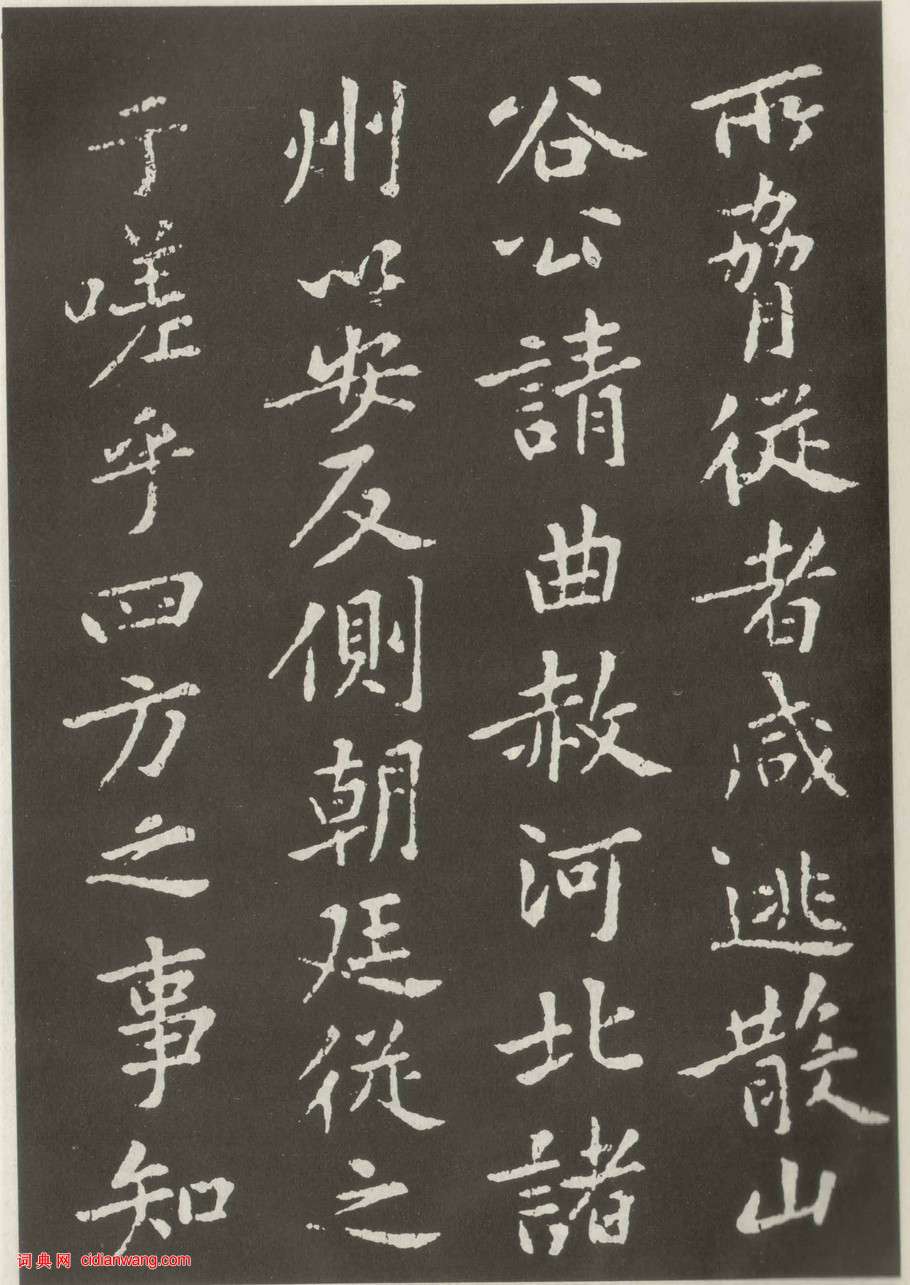 所脅従者咸逃散山
谷公請曲赦河北諸
州以安反側朝廷従之
于嗟乎四方之事知
词典网 cidianwang.com